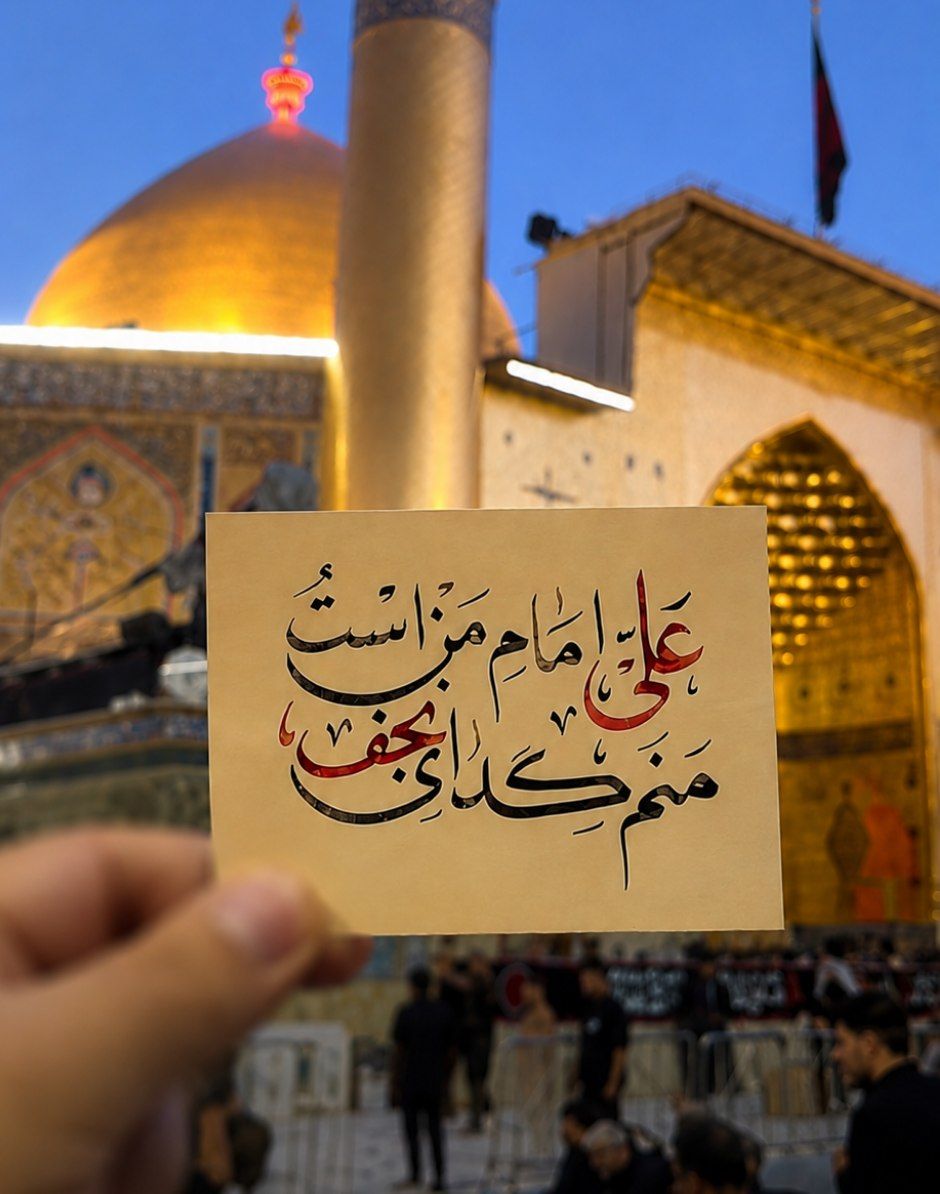 علیّ امامِ مَن است و
مَنَم گدای نجف